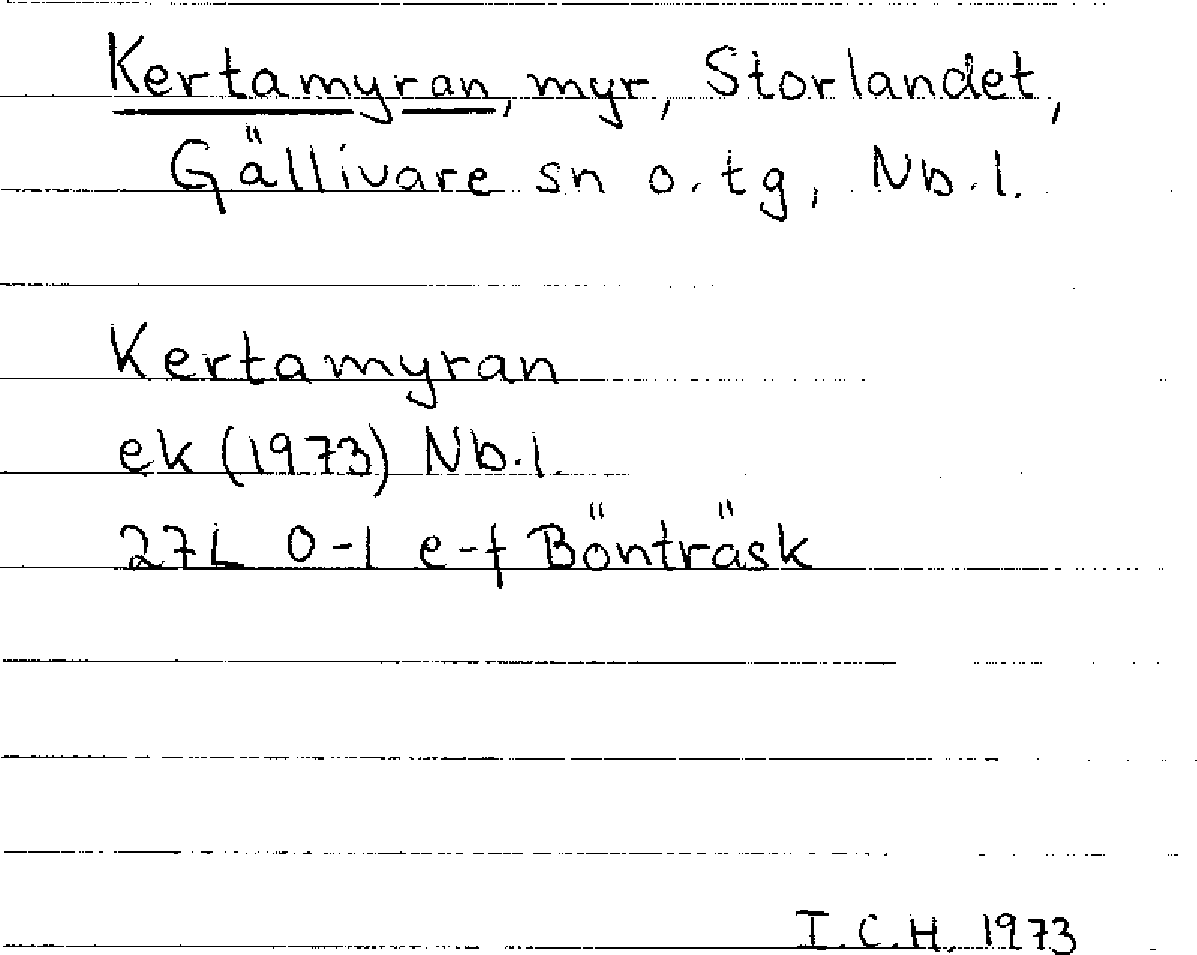 Kertamyran, myr, Storlandet,
Gällivare sn o. tg, Nb. l.
Kertamyran
ek (1973) Nb. l.
27L 0-1 e-f Bönträsk
I.C.H. 1973